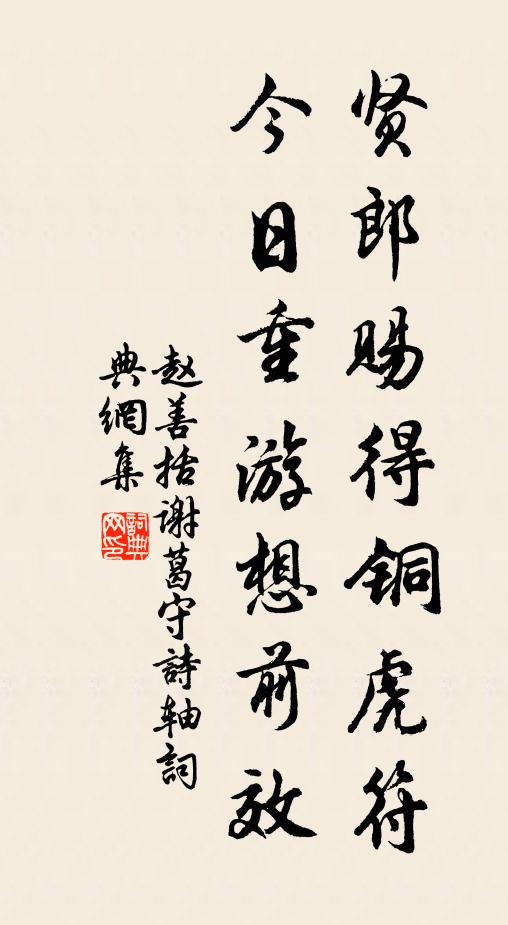 贤郎赐得铜虎符
今日重游想前效
赵善括谢葛守詩轴詞
典網集
詞典
网印